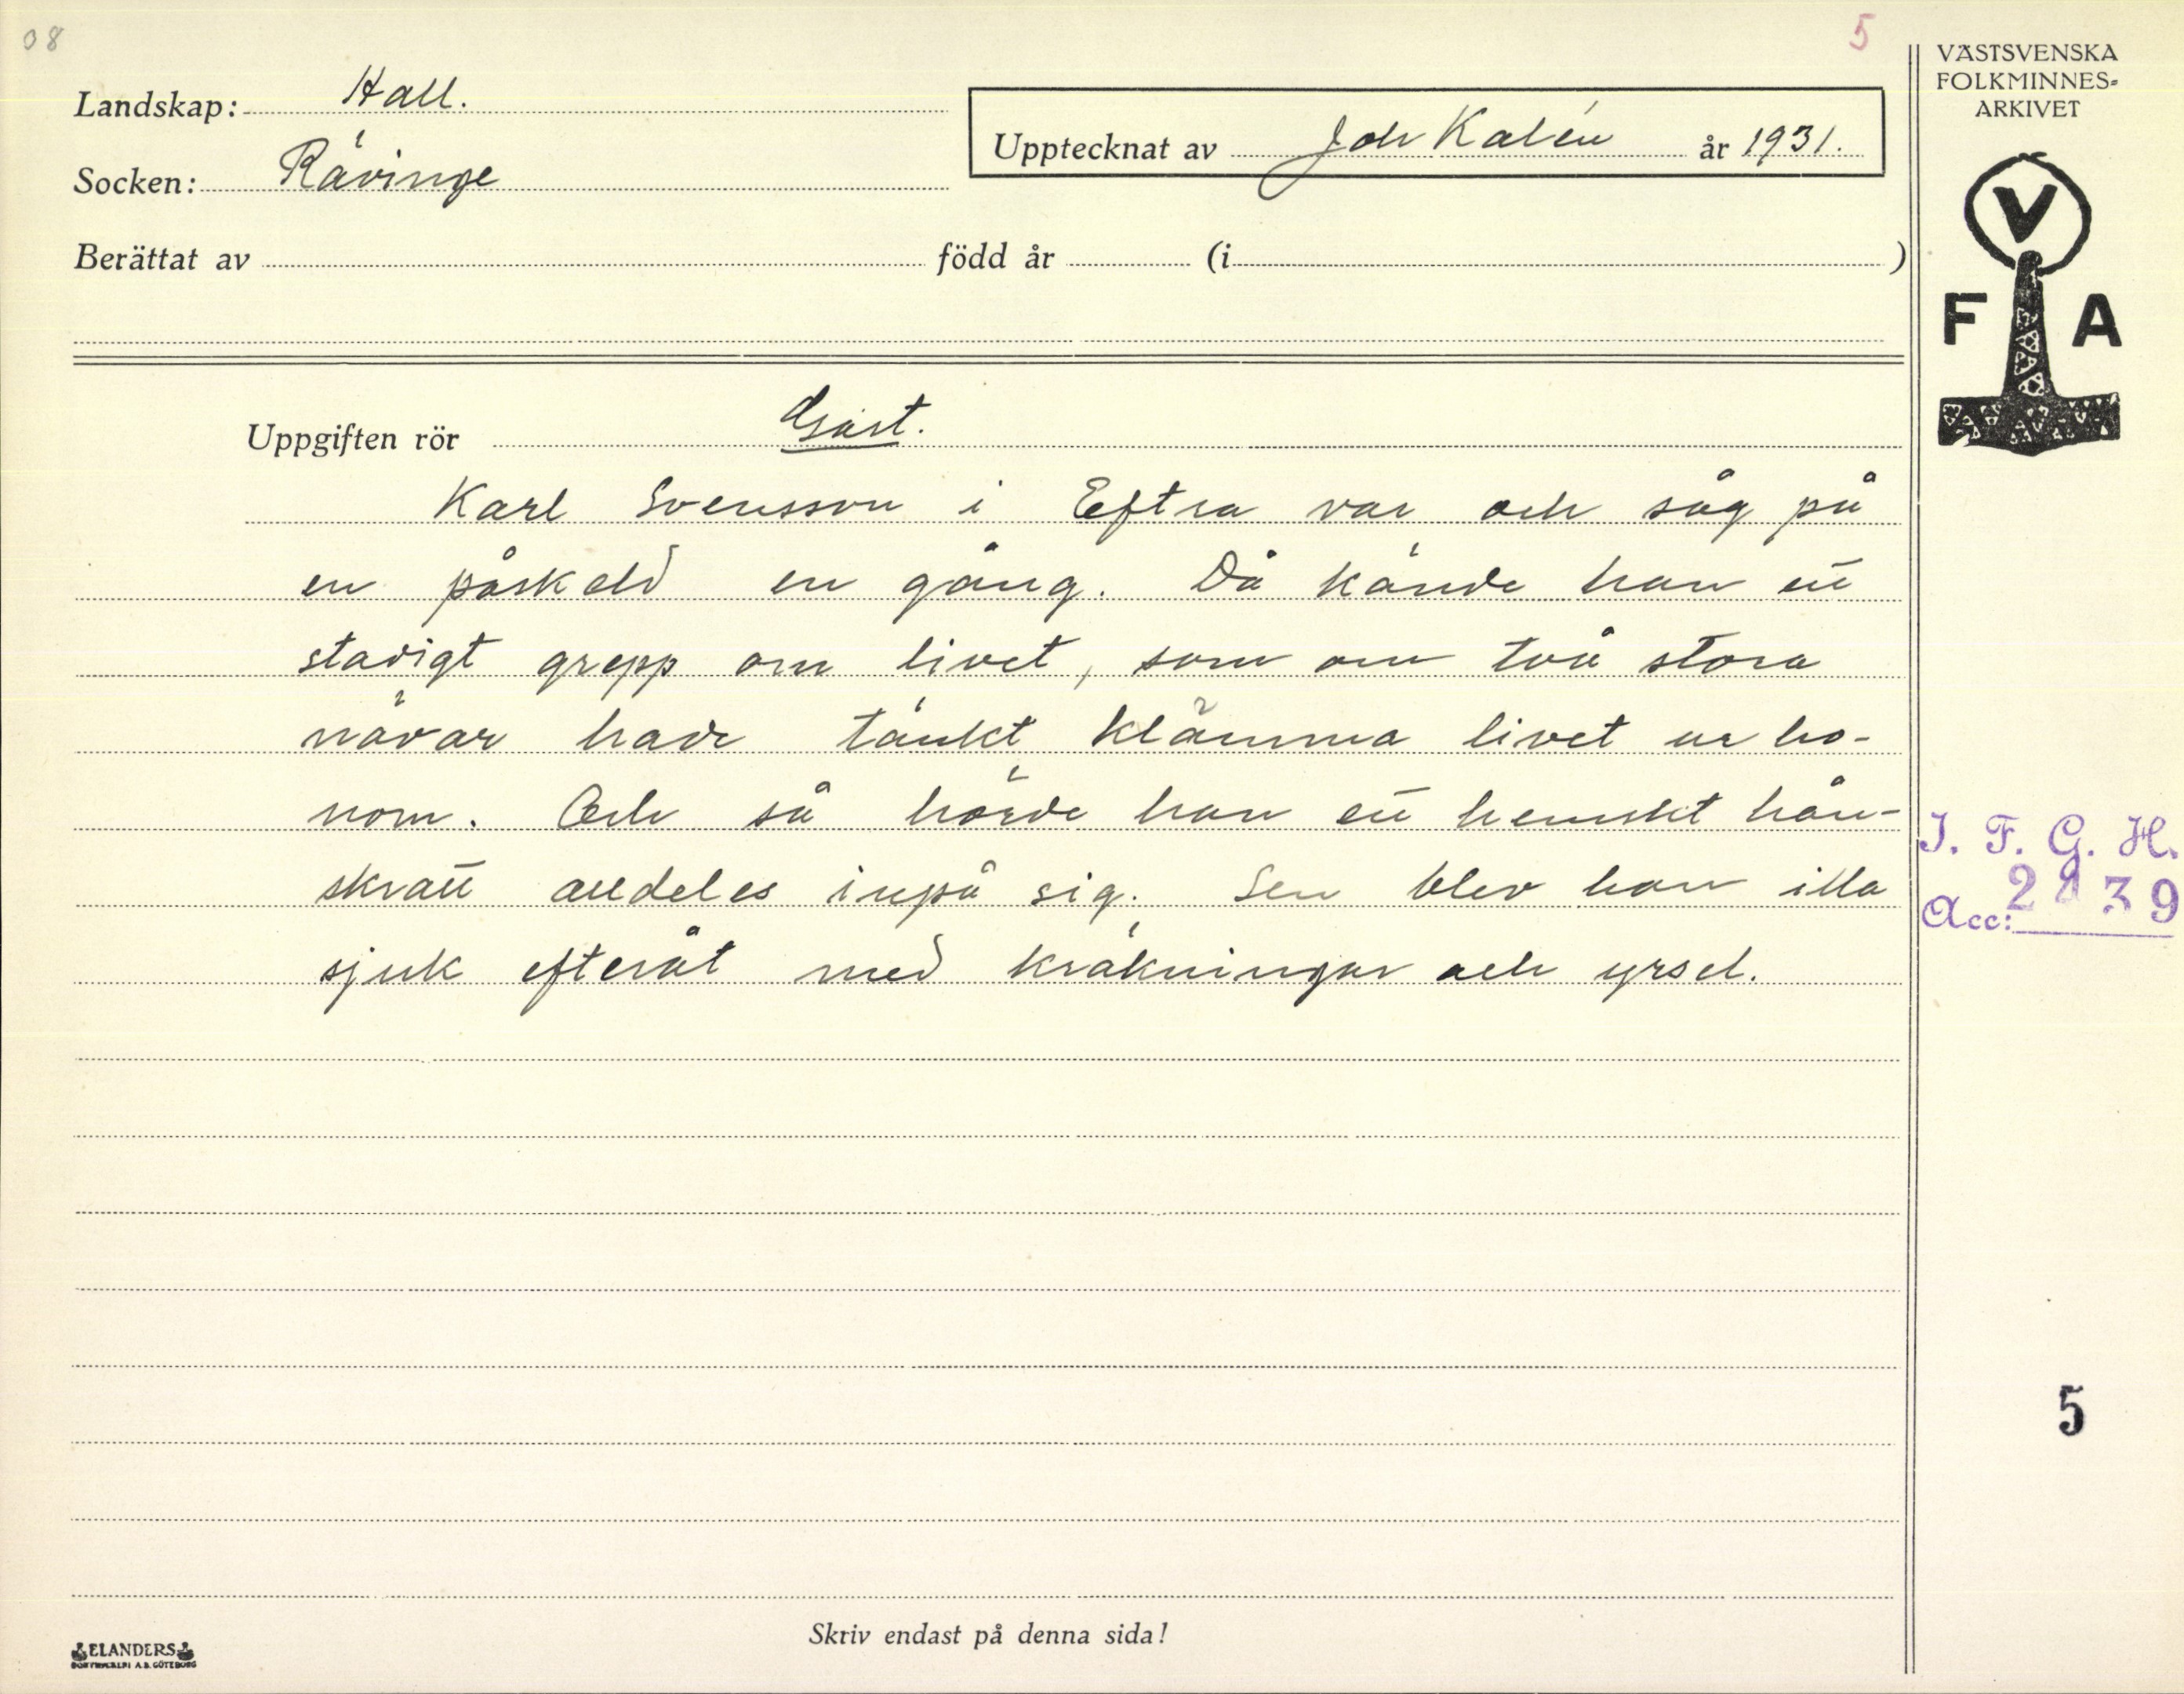 08
5
Landskap: Hall.
Socken: Rävinge
Upptecknat av Joh Kalén år 1931.
Berättat av född år (i )
Uppgiften rör Gast.
Karl Svensson i Eftra var och såg på
en påskeld en gång. Då kände han ett
stadigt grepp om livet, som om två stora
nävar hade tänkt klämma livet ur ho-
nom. Och så hörde han ett hemskt hån-
skratt alldeles inpå sig. Sen blev han illa
sjuk efteråt med kräkningar och yrsel.
Skriv endast på denna sida!
ELANDERS
BOKTRYCKERI A.B. GÖTEBORG
VÄSTSVENSKA
FOLKMINNES=
ARKIVET
V
F A
I. F. G. H.
Acc:
5